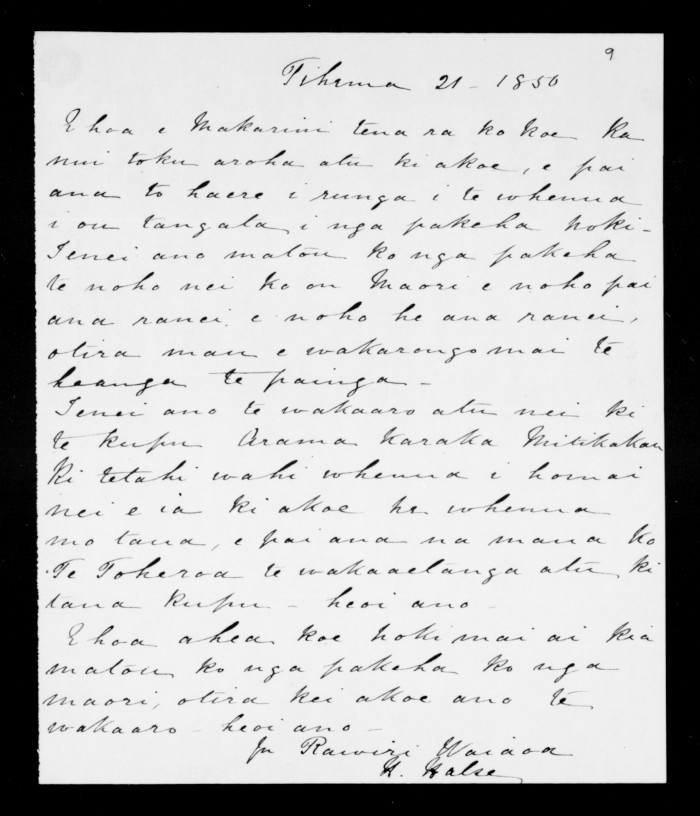 9
Tihema 21 - 1850
E hoa e Makarini tena ra ko koe Ka
nui toku aroha atu ki akoe, e pai
ana to haere i runga i te whenua
i ou tangata, i nga pakeha hoki -
Tenei ano matou ko nga pakeha
te noho nei ko ou Maori e noho pai
ana ranei, e noho he ana ranei,
otira mau e wakarongo mai te
heanga te painga -
Tenei ano te wakaaro atu nei ki
te kupu Arama Karaka Mitikakau
Ki tetahi wahi whenua i homai
nei e ia ki akoe he whenua
mo tana, e pai ana na mana ko
Te Toheroa te wakaaetanga atu ki
tana kupu - heoi ano -
E hoa ahea koe hoki mai ai kia
matou ko nga pakeha ko nga
maori, otira kei akoe ano te
wakaaro - heoi ano -
Rawiri Waiaoa
H. Halse